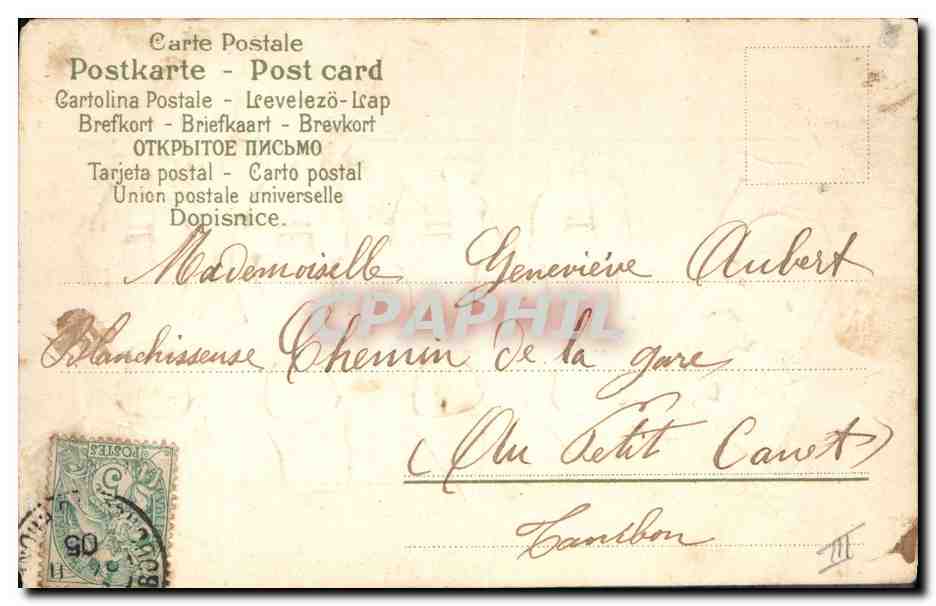 Carte Postale
Postkarte - Post card
Cartolina Postale - Levelezö-Lap
Brefkort - Briefkaart - Brevkort
ОТКРЫТОЕ ПИСЬМО
Tarjeta postal - Carto postal
Union postale universelle
Dopisnice.
Mademoiselle Geneviéve Aubert
CPAPHIL
Blanchisseuse Chemin de la gare
(Au Petit Canet)
POSTES
5
05
III